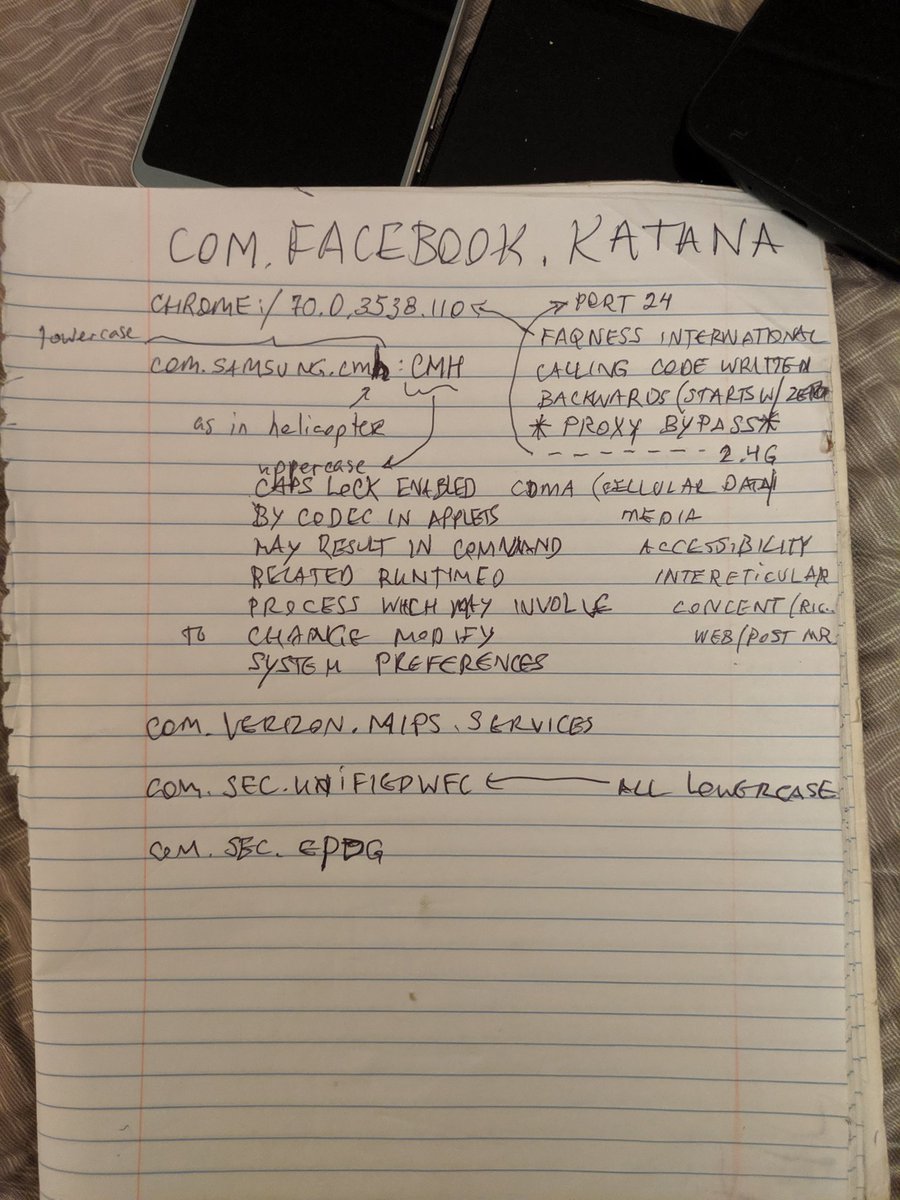 COM. FACEBOOK. KATANA
CHROME:/ 70.0.3538.110
PORT 24
FAQNESS INTERNATIONAL
CALLING CODE WRITTEN
BACKWARDS (STARTS W/ ZERO
* PROXY BYPASS*
2.4G
lowercase
COM.SAMSUNG.cmh : CMH
as in helicopter
uppercase
CAPS LOCK ENABLED CDMA (CELLULAR DATA/
BY CODEC IN APPLETS MEDIA
MAY RESULT IN COMMAND ACCESSIBILITY
RELATED RUNTIMED INTERETICULAR
PROCESS WHICH MAY INVOLVE CONCENT/RIG..
TO CHANGE MODIFY WEB/POST MR
SYSTEM PREFERENCES
COM. VERIZON. MIPS. SERVICES
COM. SEC. UNIFIEDWFC ALL LOWERCASE
COM. SEC. EPDG